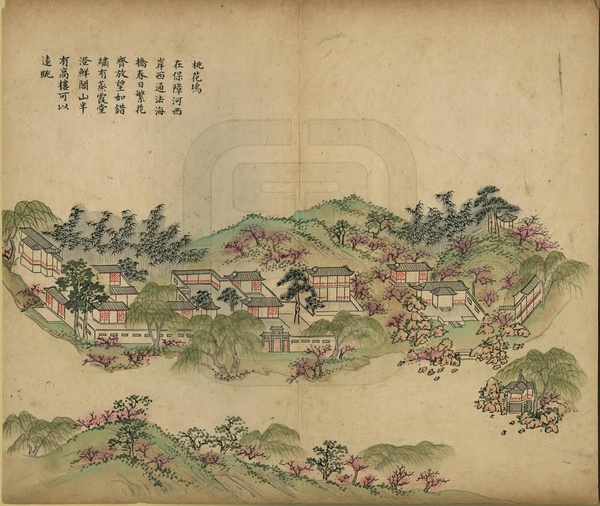 桃花塢
在保障河西
岸西通法海
橋春日繁花
齊放望如錯
繡有蒸霞堂
澄鮮閣山半
有高樓可以
遠眺